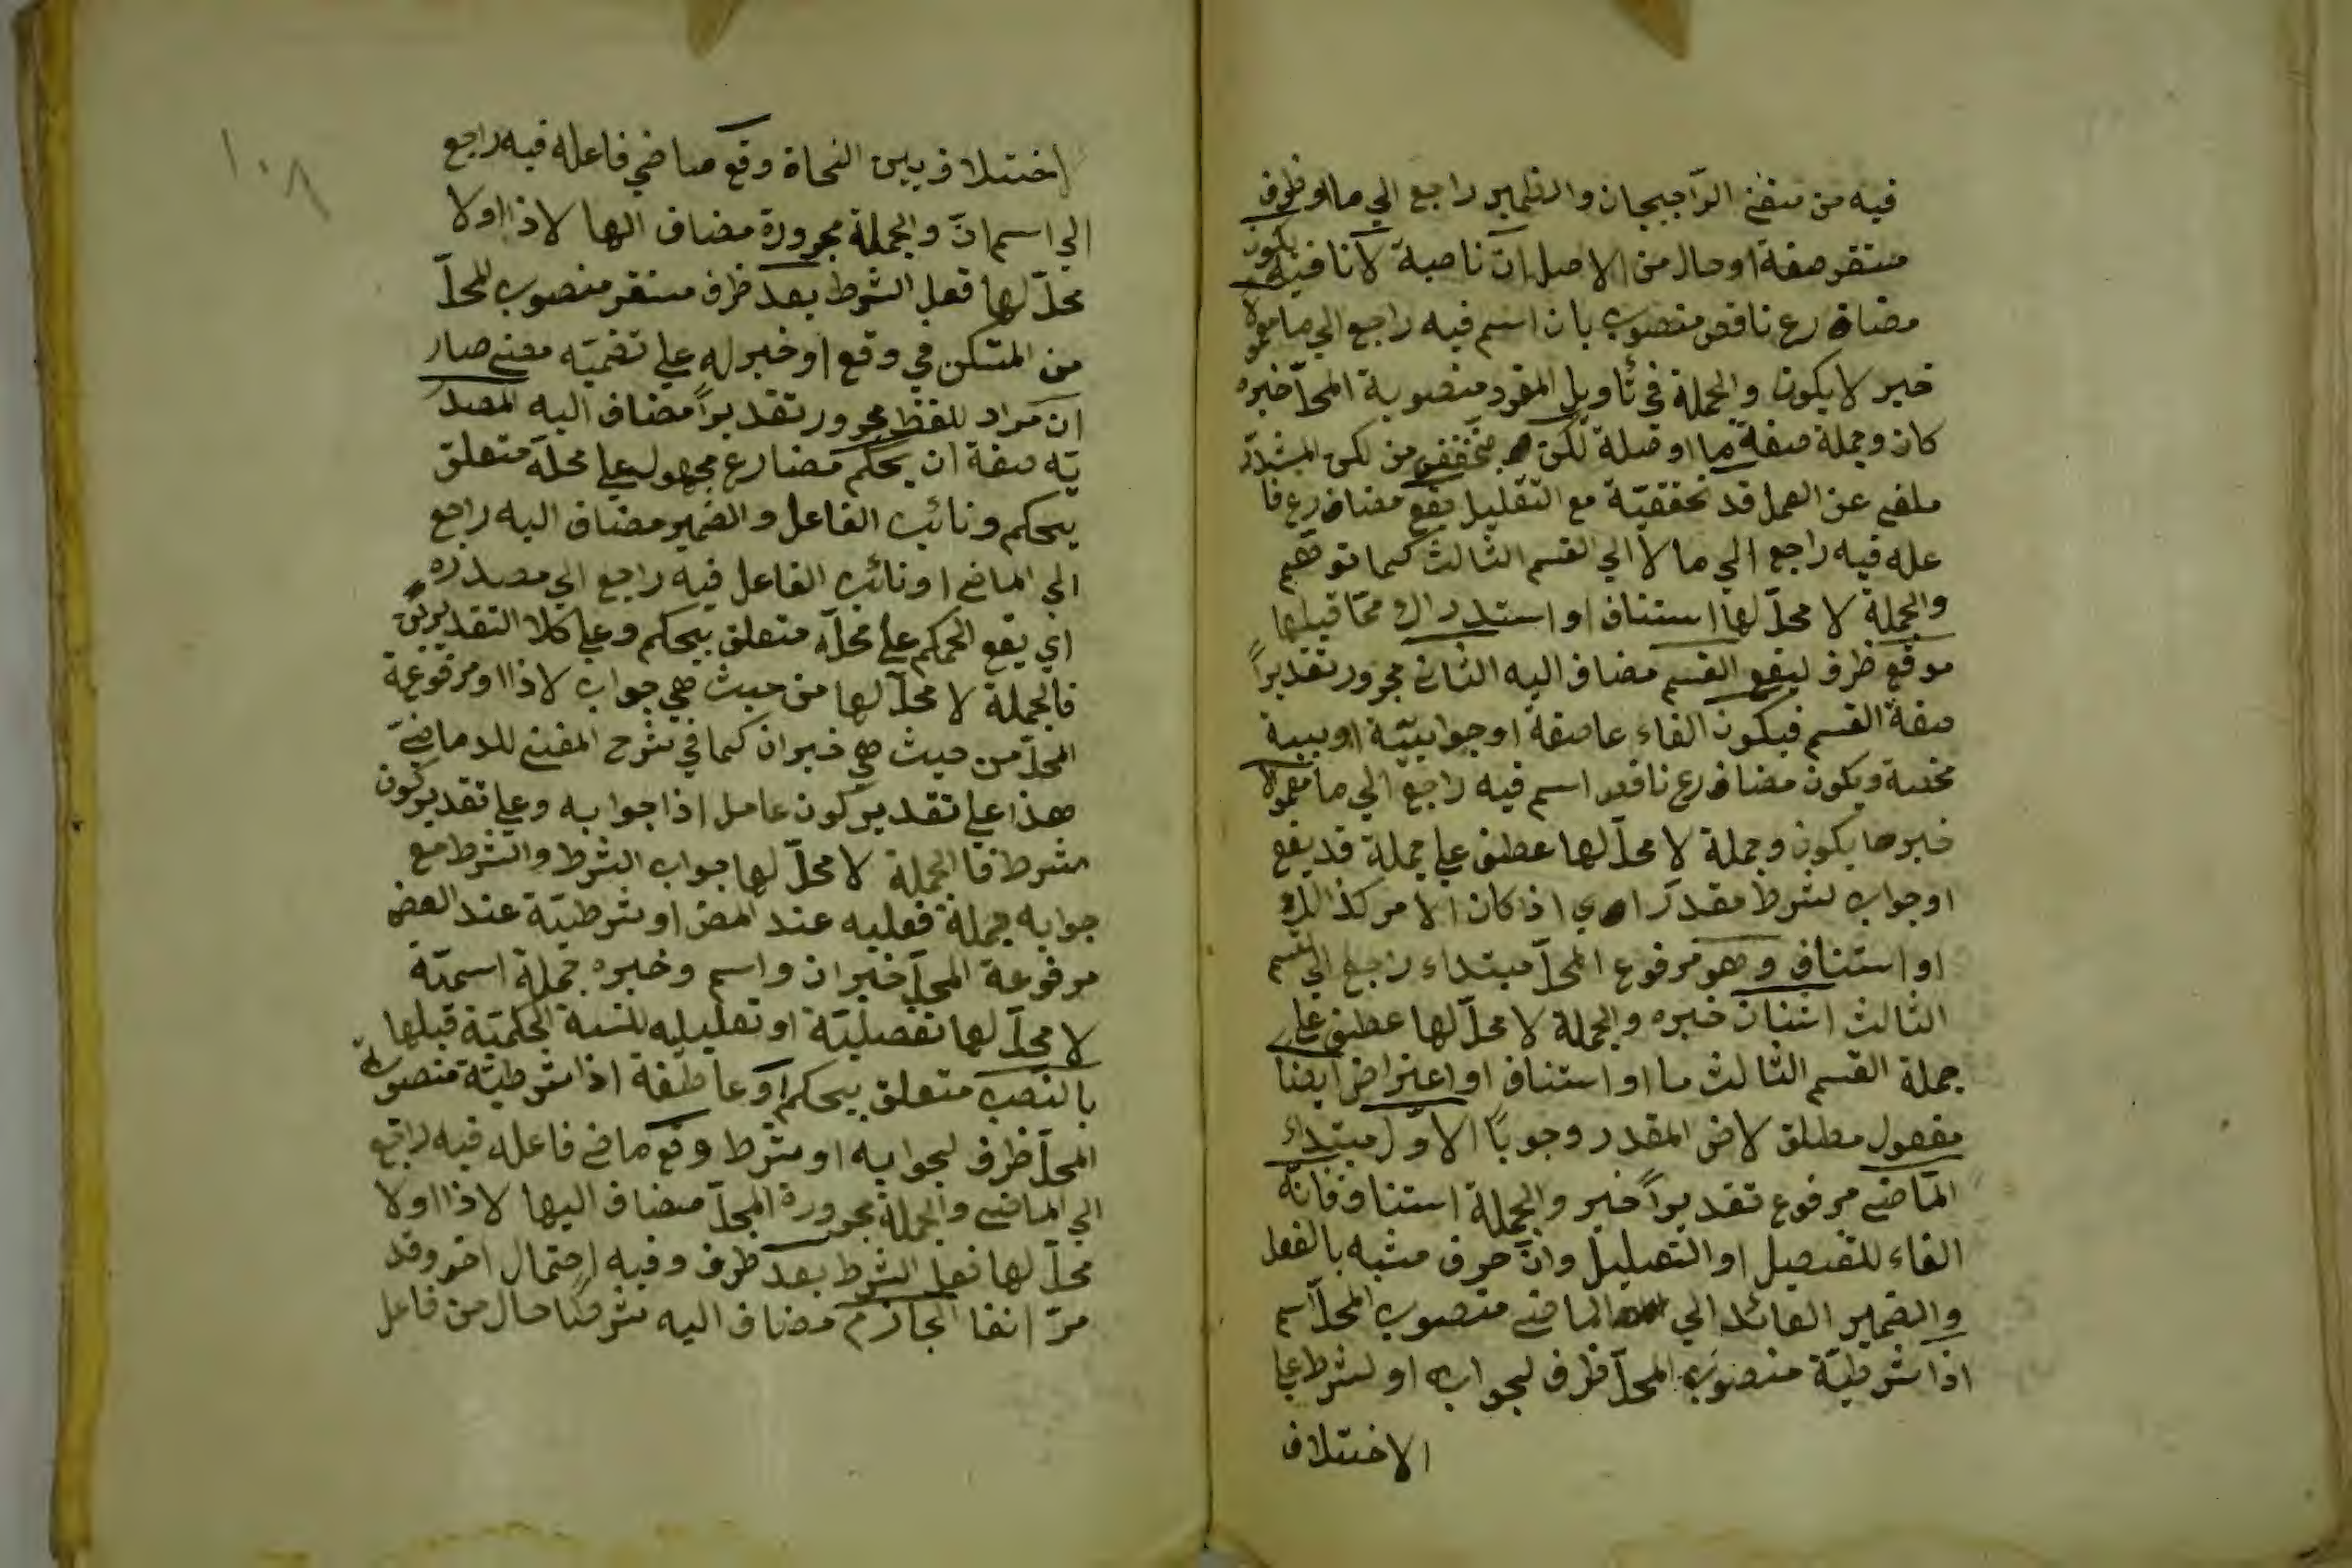 فيه من متقن الراجيحان والضمير راجع الي ما او ظرف
مستقر صفة او حال من الاصل ان ناصبة لا نافية يكون
مضارع ناقص منصوب بان اسم فيه راجع الي ما معمولا
خبر لا يكون والجملة في تأويل المفرد منصوبة المحلّ خبره
كان وجملة صفة ما او صلة لكن مخففة من لكن المشدّد
ملغى عن العمل قد تحقيقيّة مع التقليل يقع مضارع فا
عله فيه راجع الي ما لا الي القسم الثالث كما توهّم
والجملة لا محلّ لها استئناف او استدراك ممّا قبلها
موقع ظرف ليقع القسم مضاف اليه الثاني مجرور تقديراً
صفة القسم فيكون الفاء عاطفة او جوابيّة او سببية
محضة ويكون مضارع ناقص اسم فيه راجع الي ما معمولا
خبر ما يكون وجملة لا محلّ لها عطف علي جملة قد يقع
او جواب لشرط مقدر اي اذا كان الامر كذالك
او استئناف وهو مرفوع المحلّ مبتداء راجع الي القسم
الثالث اثنان خبره والجملة لا محلّ لها عطف علي
جملة القسم الثالث ما او استئناف او اعتراض ايضا
مفعول مطلق لاض المقدر وجوباً الاوّل مبتداء
الماضي مرفوع تقديراً خبر والجملة استئناف فانّه
الفاء للتفصيل او التعليل وانّ حرف مشبه بالفعل
والضمير العائد الي الماضي منصوب المحلّ اسم
اذا شرطيّة منصوب المحلّ ظرف لجوابه او لشرط علي
الاختلاف
١٠٨
اختلاف بين النحاة وقع ماضي فاعله فيه راجع
الي اسم انّ والجملة مجرورة مضاف الها لاذا او لا
محلّ لها فعل الشرط بعد ظرف مستقر منصوب المحلّ
من المستكن في وقع او خبر له علي تضمينه معنى صار
ان مراد للفظ مجرور تقديراً مضاف اليه المصدر
يّه صفة ان يحكم مضارع مجهول علي محلّه متعلق
بيحكم ونائب الفاعل والضمير مضاف اليه راجع
الي الماضي او نائب الفاعل فيه راجع الي مصدره
اي يقع الحكم علي محلّه متعلق بيحكم وعلي كلا التقديرين
فالجملة لا محلّ لها من حيث هي جواب لاذا او مرفوعة
المحلّ من حيث هي خبر ان كما في شرح المغني للدمامينيّ
هذا علي تقدير كون عامل اذا جوابه وعلي تقدير كون
شرط فالجملة لا محلّ لها جواب الشرط والشرط مع
جوابه جملة فعليه عند المص او شرطيّة عند البعض
مرفوعة المحلّ خبر ان واسم وخبره جملة اسميّة
لا محلّ لها تفصيليّة او تعليليه للنسبة الحكميّة قبلها
بالنصب متعلق بيحكم او عاطفة اذا شرطيّة منصوبة
المحلّ ظرف لجوابه او شرط وقع ماضي فاعله فيه راجع
الي الماضي والجملة مجرورة المحلّ مضاف اليها لاذا او لا
محلّ لها فعل الشرط بعد ظرف وفيه احتمال اخر وقد
مرّ انفا الجازم مضاف اليه شرطا حال من فاعل